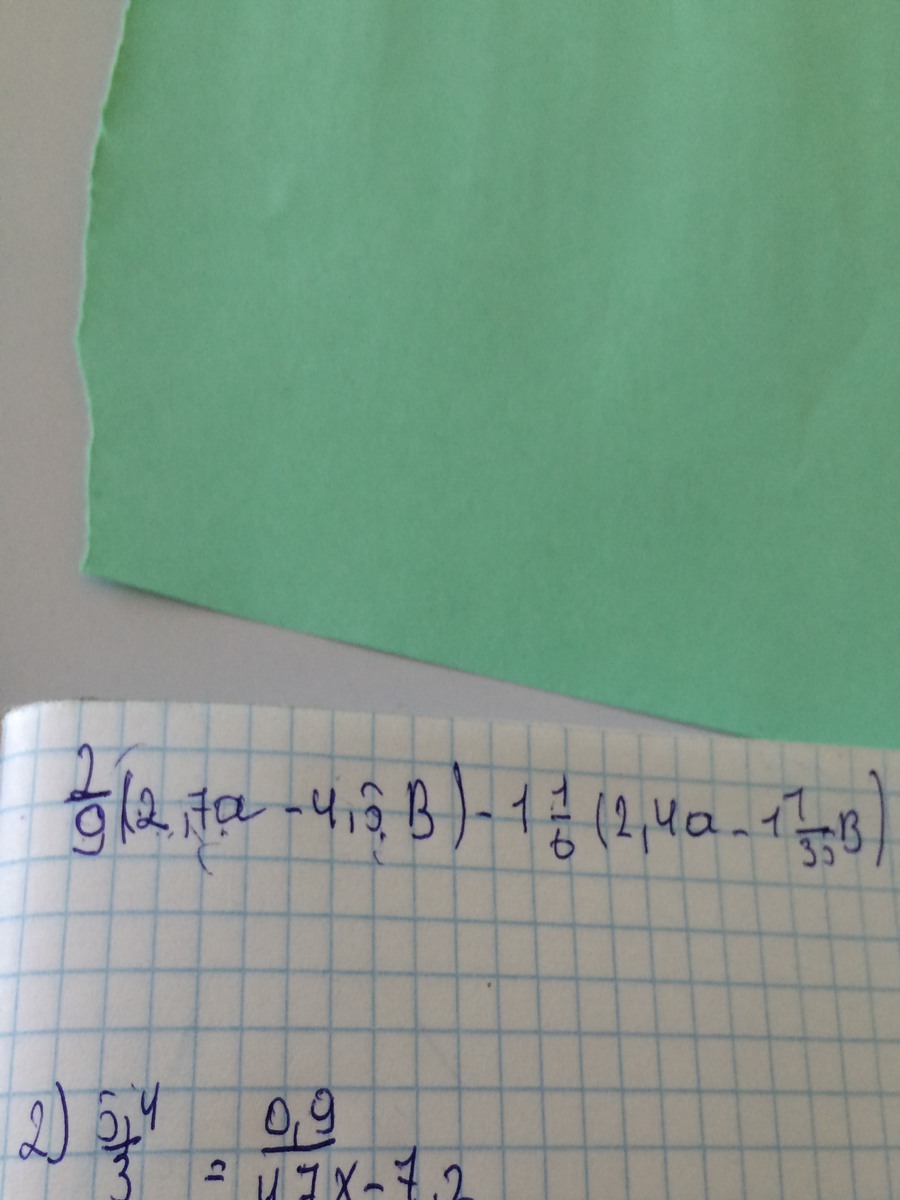 2/9 (2,7a - 4,5 B) - 1 1/6 (2,4a - 1 1/35 B)
2) 5,4/3 = 0,9/4,7x-7,2